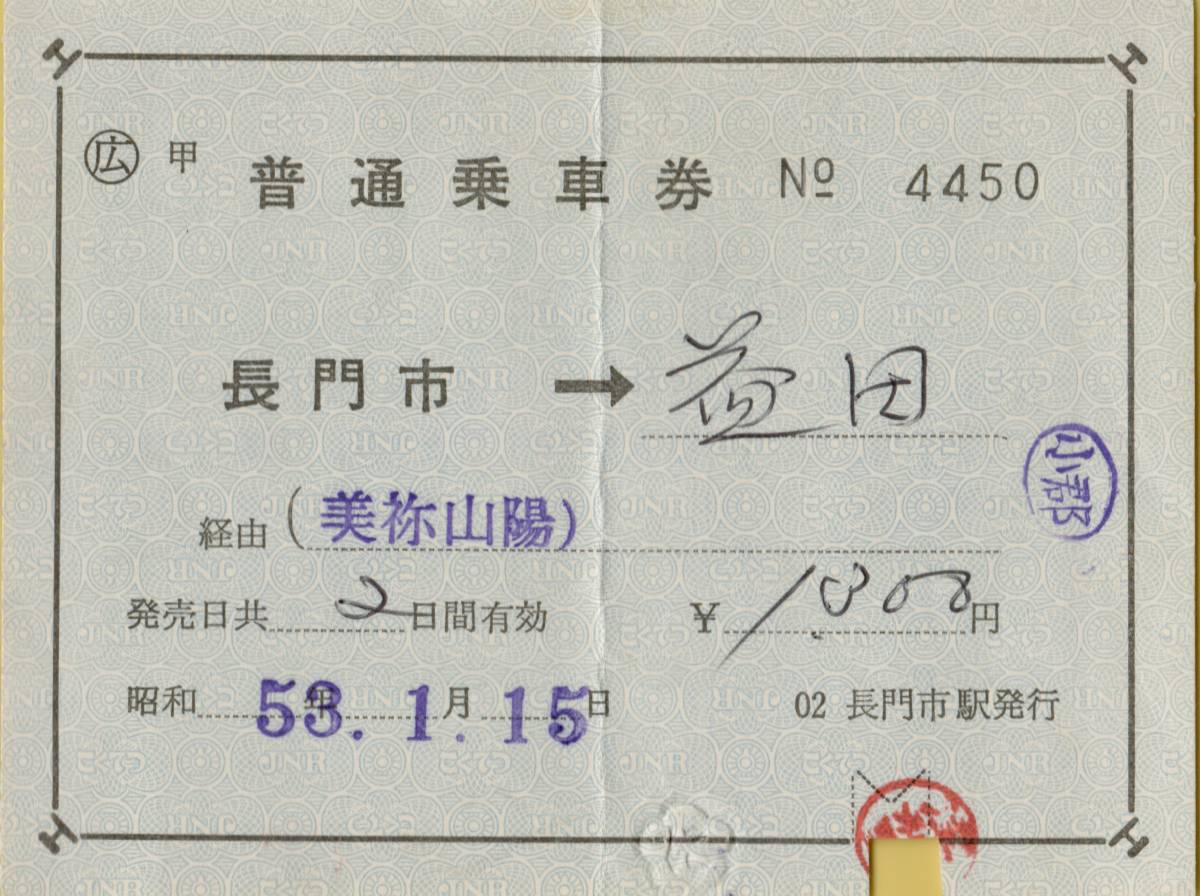 広 甲 普通乗車券 № 4450
長門市 → 益田
小郡
経由 (美祢山陽)
発売日共 2 日間有効 ¥ 1,800 円
昭和 53年. 1.月 15日 02 長門市駅発行